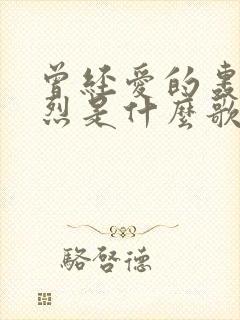 曾經愛的轟
烈是什麼歌
駱啓德